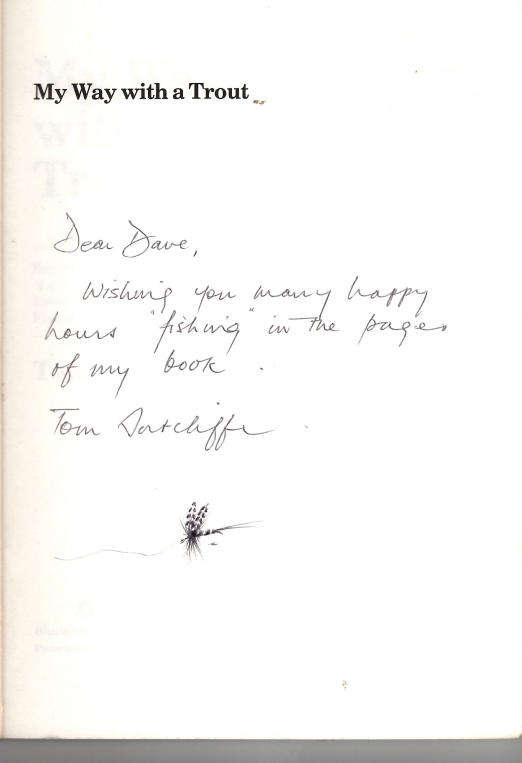 My Way with a Trout
Dear Dave,
Wishing you many happy
hours "fishing" in the pages
of my book .
Tom Sutcliffe